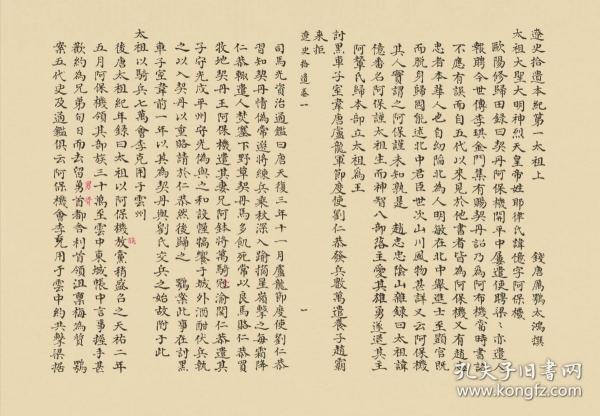 遼史拾遺本紀第一太祖上
錢唐厲鶚太鴻撰
太祖大聖大明神烈天皇帝姓耶律氏諱億字阿保機
歐陽修歸田錄曰契丹阿保機開平中屢遣使聘梁亦遣人
報聘今世傳李琪金門集有賜契丹詔乃為阿布機當時書詔
不應有誤而自五代以來見於他書者皆為阿保機又有趙志
忠者本華人也自幼陷北為人明敏在北中舉進士至顯官既
而脫身歸國能述北中君臣世次山川風物甚詳又云阿保機
其人實謂之阿保謹未知孰是
趙志忠陰山雜錄曰太祖諱
億番名阿保謹太祖生而神智八部落主愛其雄勇遂退其主
阿輦氏歸本部立太祖為王
討黑車子室韋唐盧龍軍節度使劉仁恭發兵數萬遣養子趙霸
來拒
遼史拾遺卷一
一
司馬光資治通鑑曰唐天復三年十一月盧龍節度使劉仁恭
習知契丹情偽常選將練兵乘秋深入踰摘星嶺擊之每霜降
仁恭輒遣人焚塞下野草契丹馬多飢死常以良馬賂仁恭買
牧地契丹王阿保機遣其妻兄阿鉢將萬騎寇渝關仁恭遣其
子守光戍平州守光偽與之和設幄犒饗于城外酒酣伏兵執
之以入契丹以重賂請於仁恭然後歸之
鶚案此事在討黑
車子室韋前一年以其為契丹與劉氏交兵之始故附于此
太祖以騎兵七萬會李克用于雲州
後唐太祖紀年錄曰太祖以阿保機族黨稍盛召之天祐二年
五月阿保機領其部族三十萬至雲中東城帳中言事握手甚
歡約為兄弟旬日而去留男首都舍利首領沮禀梅為質
鶚
案五代史及通鑑俱云阿保機會李克用于雲中約共擊梁據
孔夫子旧书网
kongfz.com